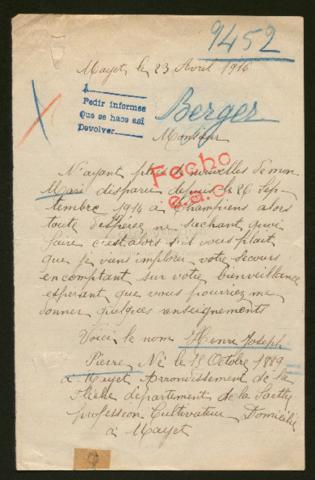 9452
Mayet le 23 Avril 1916
Pedir informes
Que se haga así
Devolver
Berger
Monsieur
N'ayant plus de nouvelles de mon
Mari disparu depuis le 26 Sep-
tembre 1914 à Champiens alors
toute d'espérez ne sachant quoi
faire c'est alors s'il vous plait
que je viens implorer votre secours
en comptant sur votre bienveillance
espérent que vous pourriez me
donner quelques renseignements
Fecho
e.a.c.
Voici le nom Henri Joseph
Pierre Né le 18 Octobre 1889
à Mayet Arrondissement de La
Flèche département de la Sarthe
profession Cultivateur Domicilié
à Mayet